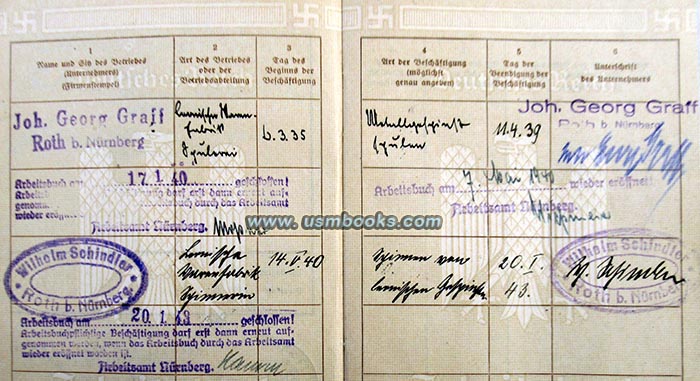 1
Name und Sitz des Betriebes
(Unternehmers)
(Firmenstempel)
2
Art des Betriebes
oder der
Betriebsabteilung
3
Tag des
Beginns der
Beschäftigung
4
Art der Beschäftigung
(möglichst
genau angeben)
5
Tag der
Beendigung der
Beschäftigung
6
Unterschrift
des Unternehmers
Deutsches Reich
Joh. Georg Graff
Roth b. Nürnberg
Leonische Waren-
fabrik
Spulerei
6.3.35
Metallgespinst
spulen
11.4.39
Joh. Georg Graff
Roth b. Nürnberg
Arbeitsbuch am 17.1.40 geschlossen!
Arbeitsbuchpflichtige Beschäftigung darf erst dann erneut auf-
genommen werden, wenn das Arbeitsbuch durch das Arbeitsamt
wieder eröffnet worden ist.
Arbeitsamt Nürnberg.
Arbeitsbuch am 7. Mai 1940
wieder eröffnet
Arbeitsamt Nürnberg.
www.usmbooks.com
Wilhelm Schindler
Roth b. Nürnberg.
Leonische
Warenfabrik
Spinnerin
14.V.40
Spinnen von
leonischen Gespinsten
20.I.
43.
Wilhelm Schindler
Roth b. Nürnberg
W. Schindler
Arbeitsbuch am 20.1.43 geschlossen!
Arbeitsbuchpflichtige Beschäftigung darf erst dann erneut auf-
genommen werden, wenn das Arbeitsbuch durch das Arbeitsamt
wieder eröffnet worden ist.
Arbeitsamt Nürnberg.